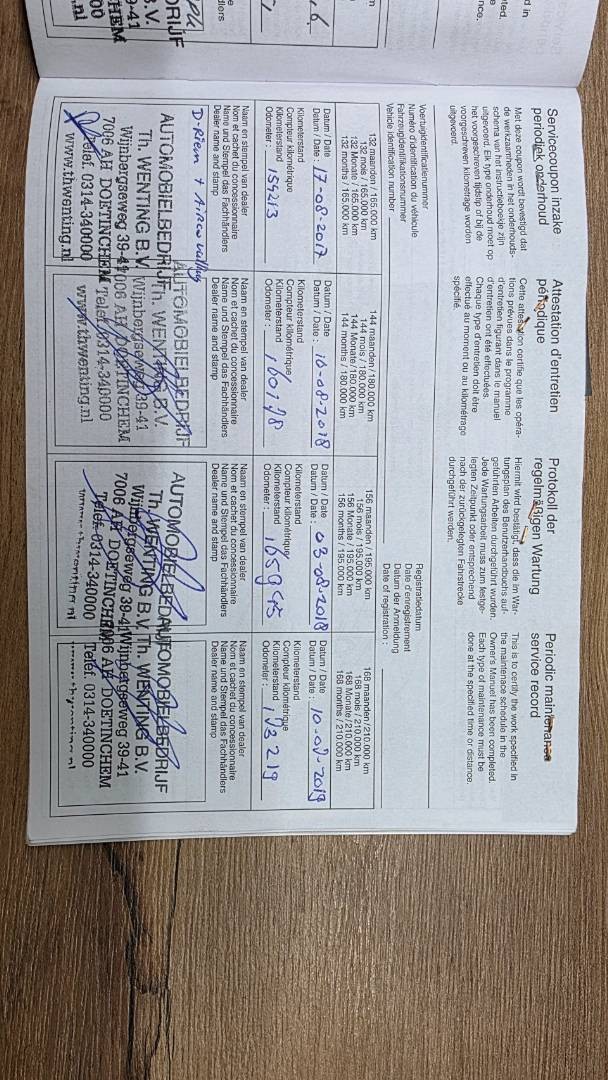 Servicecoupon inzake
periodiek onderhoud
Met deze coupon wordt bevestigd dat
de werkzaamheden in het onderhouds-
schema van het instructieboekje zijn
uitgevoerd. Elk type onderhoud moet op
het voorgeschreven tijdstip of bij de
voorgeschreven kilometrage worden
uitgevoerd.
Attestation d'entretien
périodique
Cette attestation certifie que les opéra-
tions prévues dans le programme
d'entretien figurant dans le manuel
d'entretien ont été effectuées.
Chaque type d'entretien doit être
effectué au moment ou au kilométrage
spécifié.
Protokoll der
regelmäßigen Wartung
Hiermit wird bestätigt, dass die im War-
tungsplan des Benutzerhandbuchs auf-
geführten Arbeiten durchgeführt wurden.
Jede Wartungsarbeit muss zum festge-
legten Zeitpunkt oder entsprechend
nach der zurückgelegten Fahrstrecke
durchgeführt werden.
Periodic maintenance
service record
This is to certify the work specified in
the maintenace schedule in the
Owner's Manual has been completed.
Each type of maintenance must be
done at the specified time or distance.
Voertuigidentificatienummer
Numéro d'identification du véhicule
Fahrzeugidentifikationsnummer
Vehicle identification number
Registratiedatum
Date d'enregistrement
Datum der Anmeldung
Date of registration :
132 maanden / 165.000 km
132 mois / 165.000 km
132 Monate / 165.000 km
132 months / 165.000 km
Datum / Date
Datum / Date : 17-08-2017
Kilometerstand
Compteur kilométrique
Kilometerstand
Odometer :
Naam en stempel van dealer
Nom et cachet du concessionnaire
Name und Stempel das Fachhändlers
Dealer name and stamp
D-Riem +
AUTOMOBIELBEDRIJF
Th. WENTING B.V.
Wijnbergseweg 39-41
7006 AH DOETINCHEM
Telef. 0314-340000
www.thwenting.nl
144 maanden/180.000 km
144 mois / 180.000 km
144 Monate/180.000 km
144 months / 180.000 km
Datum / Date
Datum / Date :
Kilometerstand
Compteur kilométrique
Kilometerstand
Odometer :
Naam en stempel van dealer
Nom et cachet du concessionnaire
Name und Stempel das Fachhändlers
Dealer name and stamp
AUTOMOBIELBEDRIJF
Th. WENTING B.V.
Wijnbergseweg 39-41
7006 AH DOETINCHEM
Telef. 0314-340000
www.thwenting.nl
156 maanden / 195.000 km
156 mois / 195.000 km
156 Monate / 195.000 km
156 months / 195.000 km
Datum / Date
Datum / Date : 03-08-2018
Kilometerstand
Compteur kilométrique
Kilometerstand
Odometer : 165945
Naam en stempel van dealer
Nom et cachet du concessionnaire
Name und Stempel das Fachhändlers
Dealer name and stamp
AUTOMOBIELBEDRIJF
Th. WENTING B.V.
Wijnbergseweg 39-41
7006 AH DOETINCHEM
Telef. 0314-340000
168 maanden/210.000 km
168 mois / 210.000 km
168 Monate / 210.000 km
168 months / 210.000 km
Datum / Date
Datum / Date :
Kilometerstand
Compteur kilométrique
Kilometerstand
Odometer : 173219
Naam en stempel van dealer
Nom et cachet du concessionnaire
Name und Stempel das Fachhändlers
Dealer name and stamp
AUTOMOBIELBEDRIJF
Th. WENTING B.V.
Wijnbergseweg 39-41
7006 AH DOETINCHEM
Telef. 0314-340000